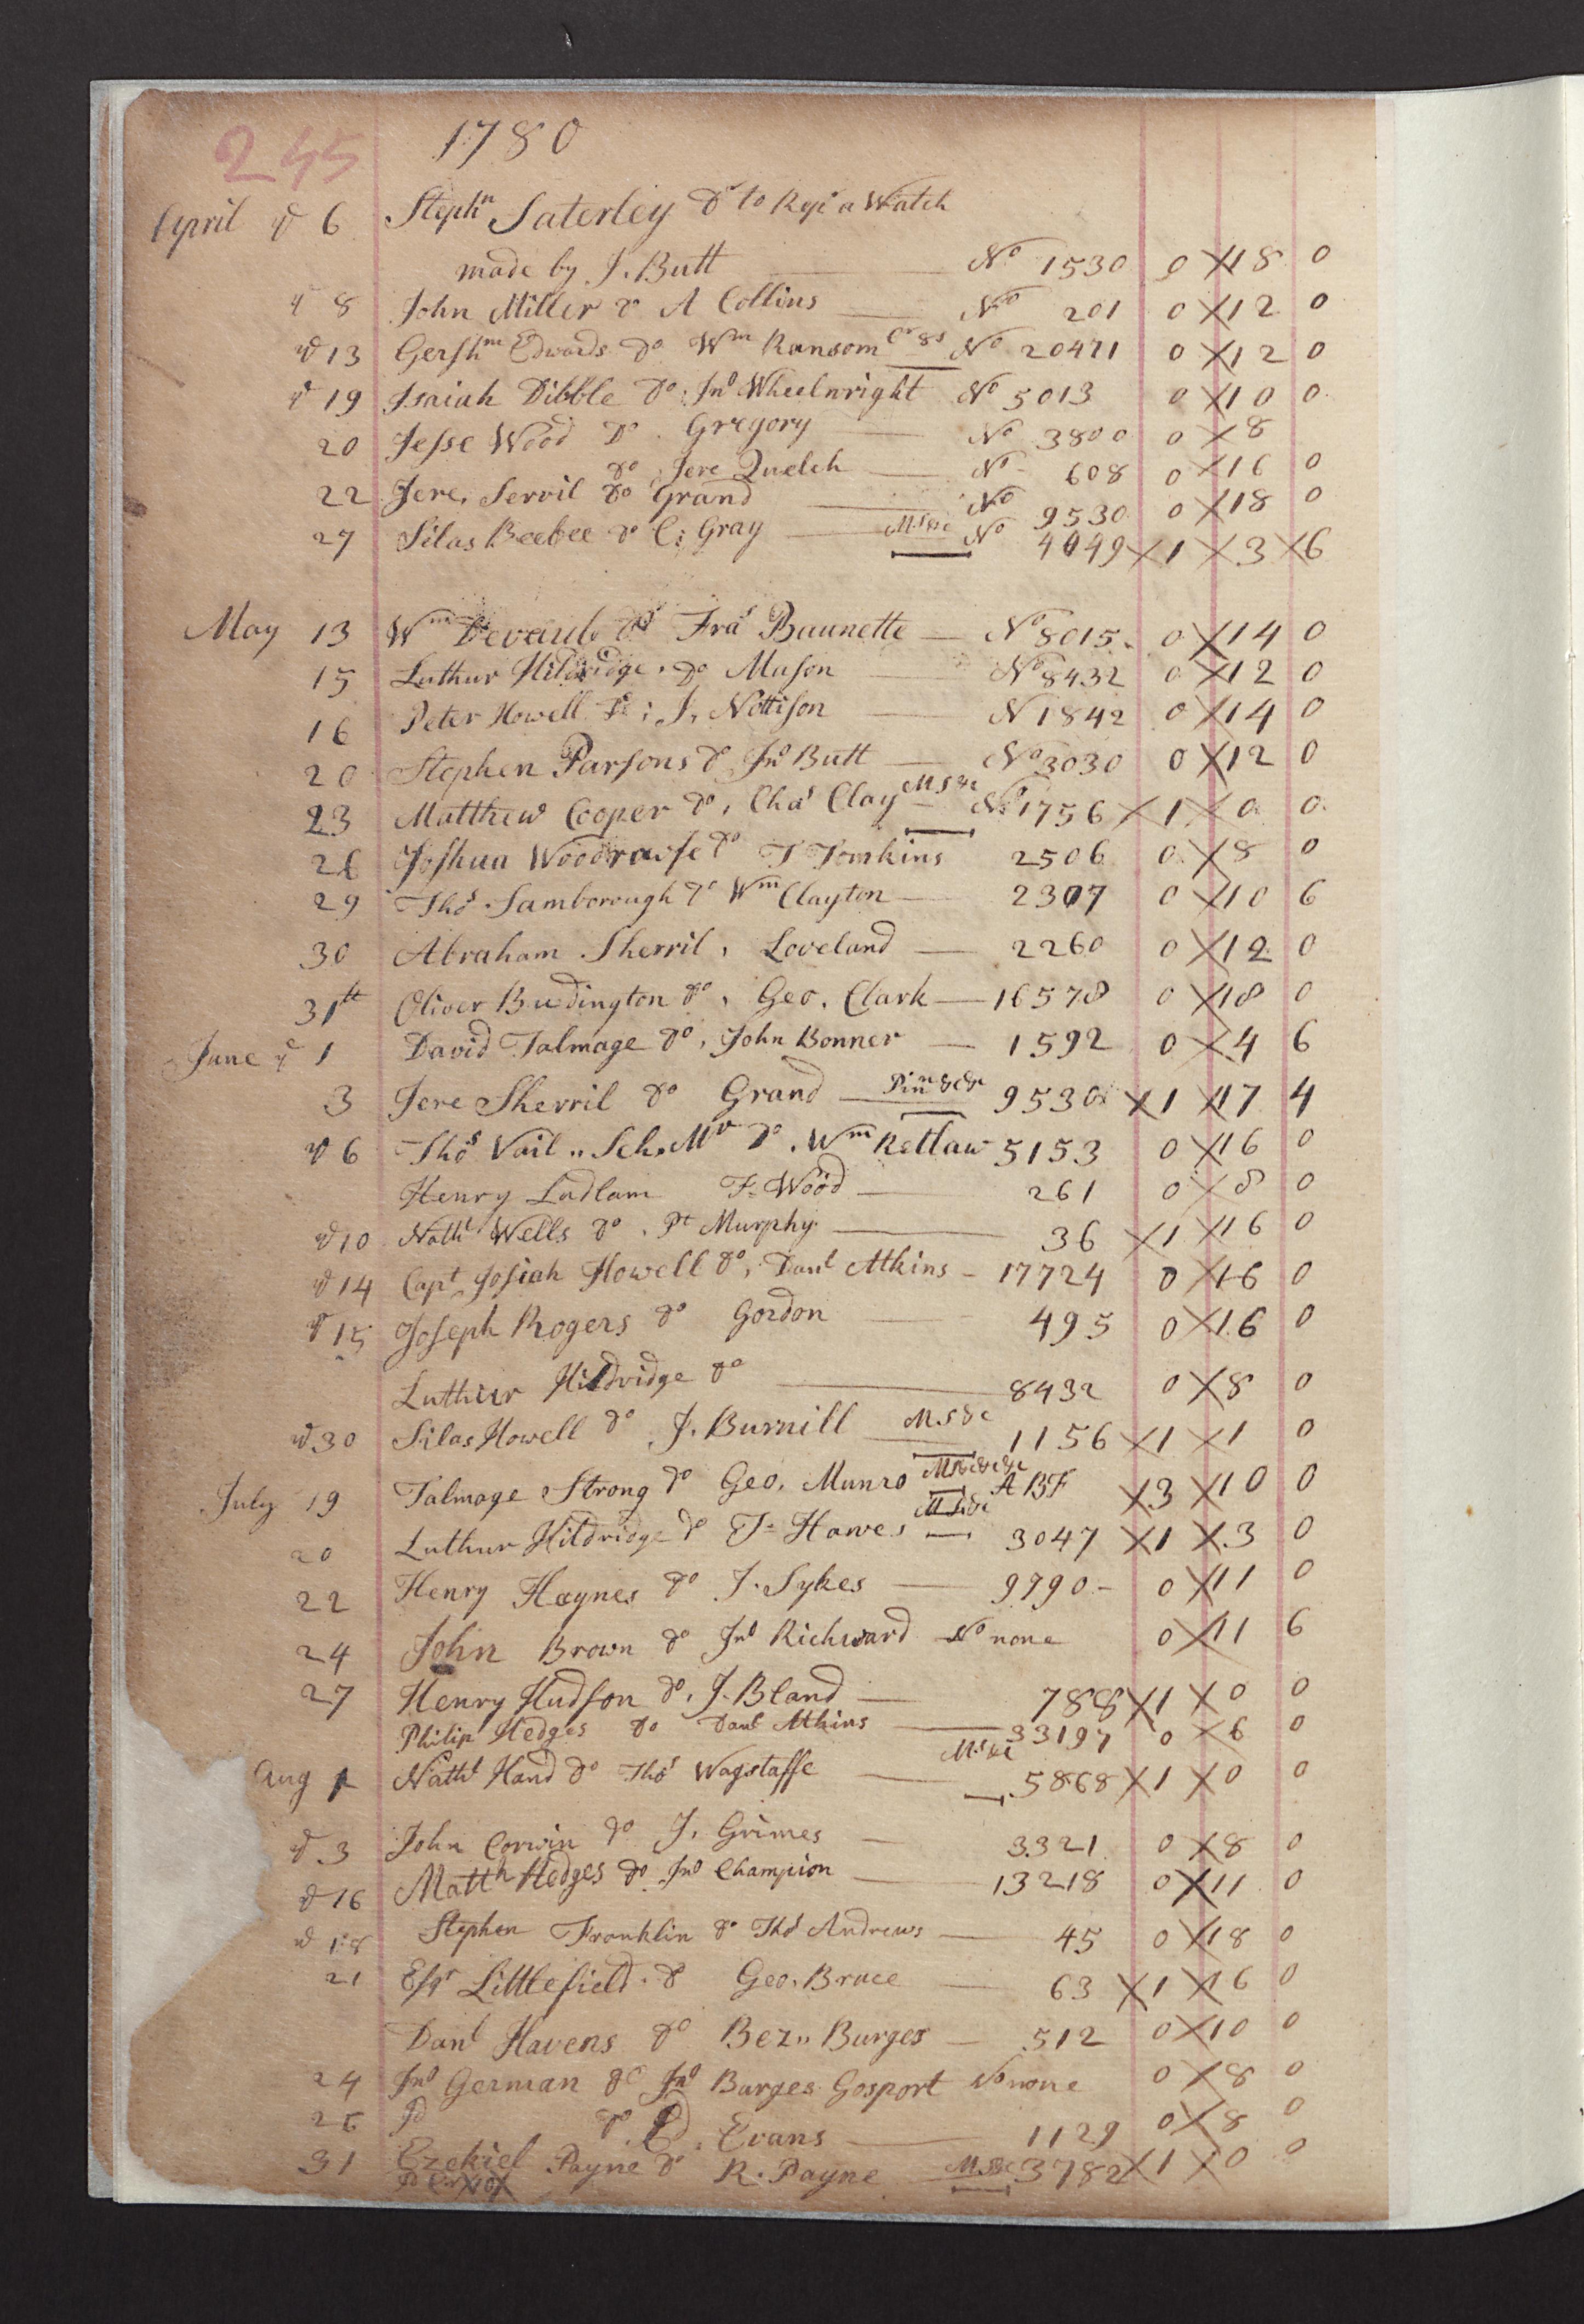 245 1780
April ye 6 Stephn Saterley Dr to Rg a Watch
made by J. Butt No 1530 0 18 0
ye 8 John Miller Do A Collins No 201 0 12 0
ye 13 Gershm Edwards Do Wm Ransom No 20471 0 12 0
ye 19 Isaiah Dibble Do Jno Wheelwright No 5013 0 10 0
20 Jesse Wood Do Gregory No 3800 0 8
Do Jere Quelch No 608 0 16 0
22 Jere. Servil Do Grand No 9530 0 18 0
27 Silas Beebee Do C: Gray M.S&c No 4049 1 3 6
May 13 Wm Do Fras No 8015 0 14 0
15 Luthur Hildridge Do Muson No 8432 0 12 0
16 Peter Howell Do: J. Nottison N 1842 0 14 0
20 Stephen Parsons Do Jno Butt No 3030 0 12 0
23 Matthew Cooper Do, Chas Clay M S &c No 1756 1 0 0
26 Joshua Do T Tomkins 2506 0 8 0
29 Thos Samborough Do Wm Clayton 2307 0 10 6
30 Abraham Sherril, Loveland 2260 0 12 0
31st Oliver Budington Do, Geo. Clark 16578 0 18 0
June ye 1 David Talmage Do, John Bonner 1592 0 4 6
3 Jere Sherril Do Grand 9530 1 17 4
ye 6 Thos Vail „ Sch. Mr Do. Wm Retlaw 5153 0 16 0
Henry Ludlam F= Wood 261 0 8 0
ye 10 Nathl Wells Do. Pt Murphy 36 1 16 0
ye 14 Capt Josiah Howell Do, Danl Atkins - 17724 0 16 0
ye 15 Joseph Rogers Do Gordon 495 0 16 0
Luthur Hildridge Do 8432 0 8 0
ye 30 Silas Howell Do J. Burnill M.S&c 1156 1 1 0
July 19 Talmage Strong Do Geo. Munro ABF 3 10 0
20 Luthur Hildridge Do J= Hawes M.S&c 3047 1 3 0
22 Henry Haynes Do J. Sykes 9790 - 0 11 0
24 John Brown Do Jno Richward No none 0 11 6
27 Henry Hudson Do, J. Bland 788 1 0 0
Philip Hedges Do Danl Atkins 33197 0 6 0
Aug 1 Nathl Hand Do Thos Wagstaffe M.S&c 5868 1 0 0
ye 3 John Corwin Do J. Grimes 3321 0 8 0
ye 16 Matth Hedges Do Jno Champion 13218 0 11 0
ye 18 Stephen Franklin Do Thos Andrews 45 0 18 0
21 Esqr Littlefield. Do Geo. Bruce 63 1 16 0
Danl Havens Do Bez„ Burges 512 0 10 0
24 Jno German Do Jno Burges Gosport No none 0 8 0
26 Do Do. Evans 1129 0 8 0
31 Ezekiel Payne Do R. Payne M.S&c 3782 1 0 0